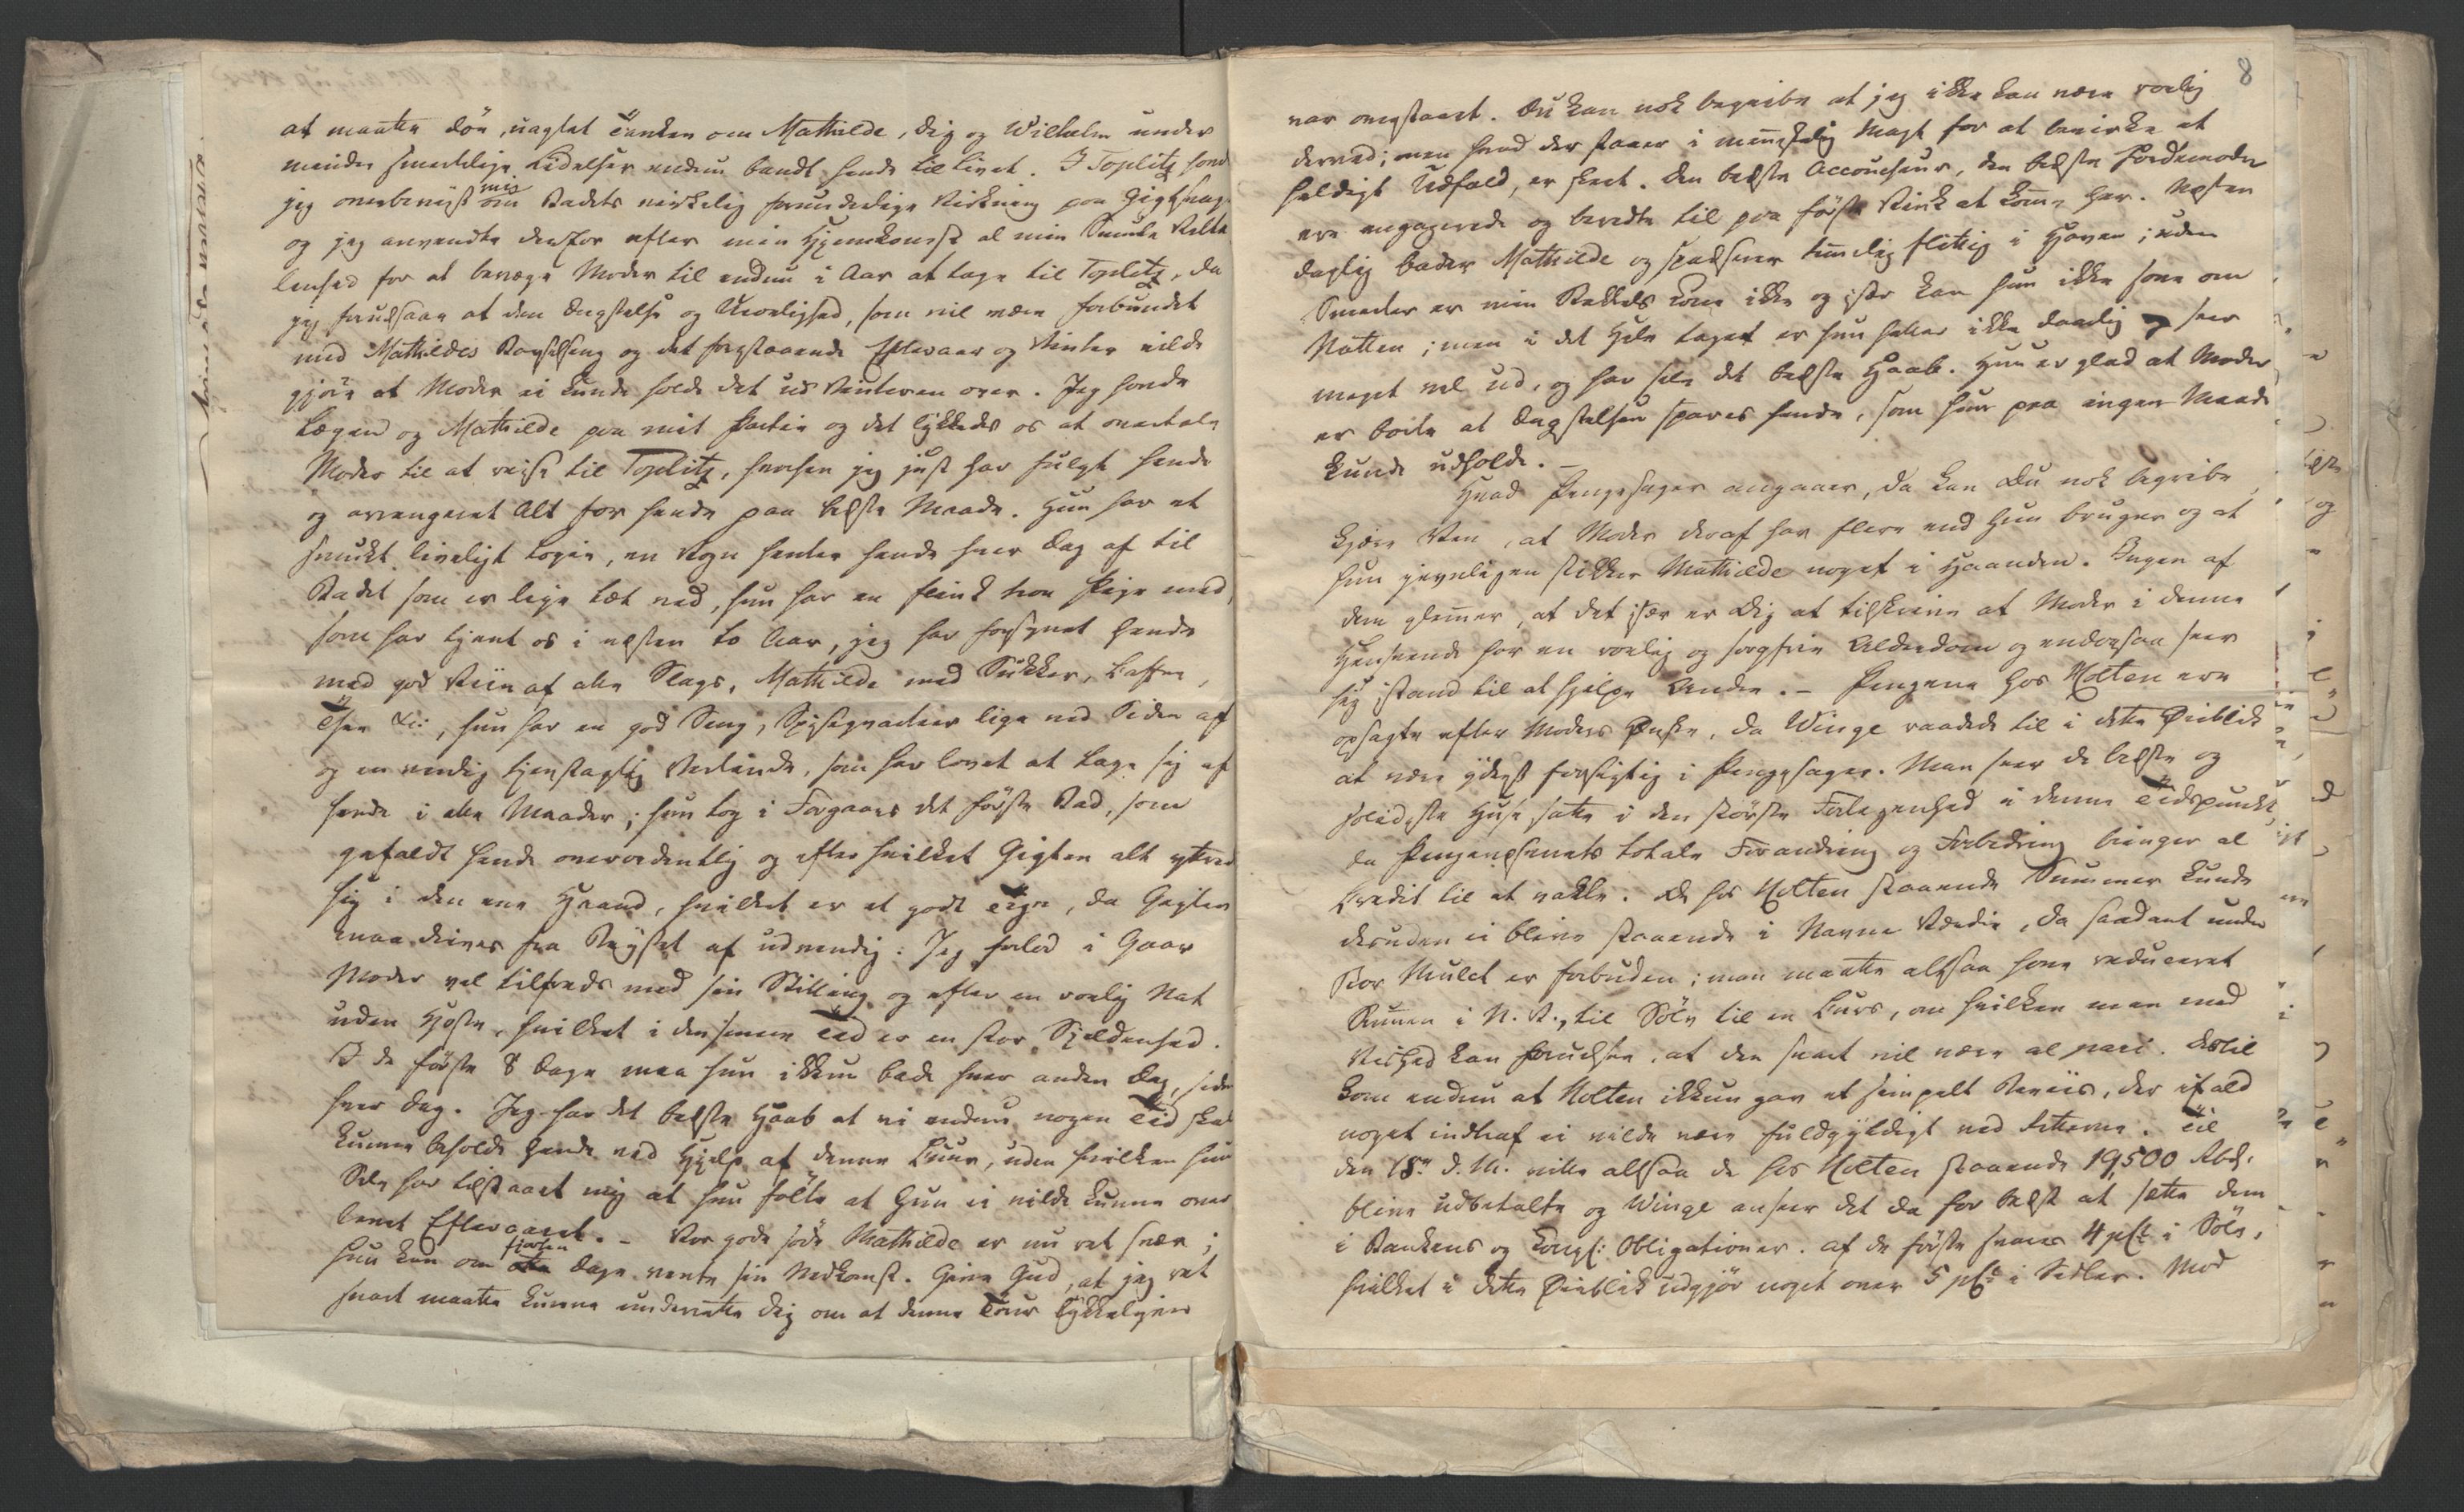 at maatte döe, uagtet Tanken om Mathilde, Dig og Wilhelm under
mindre smertelige Lidelser endnu bandt hende til Livet. I Toplitz havde
jeg overbeviist mig om Badets virkelig forunderlige Virkning paa Gigtsvage
og jeg anvendte derfor efter min Hjemkomst al min Smule Velta
lenhed for at bevæge Moder til endnu i Aar at tage til Toplitz, da
jeg forudsaae at den Ængstelse og Uroelighed, som vil være forbundet
med Mathildes Barselseng og det forestaaende Efteraar og Vinter vilde
gjöre at Moder ei kunde holde det ud Vinteren over. Jeg havde
Lægen og Mathilde paa mit Partie og det lykkedes os at overtale
Moder til at reise til Toplitz, hvorhen jeg just har fulgt hende
og arrangeret Alt for hende paa beste Maade. Hun har et
smukt liveligt Logie, en Vogn henter hende hver Dag af til
Badet som er lige tæt ved, hun har en flink troe Pige med,
som har tjent os i næsten to Aar, jeg har forsynet hende
med god Viin af alle Slags, Mathilde med Sukker, Caffee,
Thee &c:, hun har en god Seng, Spisequarteer lige ved Siden af
og en venlig tjenstagtig Vertinde, som har lovet at tage sig af
hende i alle Maader; hun tog i Forgaars det förste Bad, som
gefaldt hende overordentlig og efter hvilket Gigten alt yttred
sig i den ene Haand, hvilket er et godt Tegn, da Gigten
maa drives fra Brystet af udvendig: Jeg forlod i Gaar
Moder vel tilfreds med sin Stilling og efter en roelig Nat
uden Hoste, hvilket i den senere Tid er en stor Sjeldenhed.
I de förste 8 Dage maa hun ikkun bade hver anden Dag, siden
hver Dag. Jeg har det beste Haab at vi endnu nogen Tid skal
kunne beholde hende ved Hjelp af denne Cuur, uden hvilken hun
Selv har tilstaaet mig at hun fölte at Hun ei vilde kunne over
levet Efteraaret. - Vor gode söde Mathilde er nu ret svær;
hun kan om fjorten Dage vente sin Nedkomst. Give Gud, at jeg ret
snart maatte kunne underrette Dig om at denne Tour lykkeligen
8
var overstaaet. Du kan nok begribe at jeg ikke kan være roelig
derved; men hvad der staaer i menneskelig Magt for at bevirke et
heldigt Udfald, er skeet. Den beste Accoucheur, den beste Jordemoder
ere engagerede og beredte til paa förste Vink at komme her. Næsten
daglig bader Mathilde og spadserer temmelig flittig i Haven; uden
Smerter er min Stakkels Kone ikke og især kan hun ikke sove om
Natten; men i det Hele taget er hun heller ikke daarlig, seer
meget vel ud, og har selv det beste Haab. Hun er glad at Moder
er borte at Ængstelsen spares hende, som hun paa ingen Maade
kunde udholde. -
Hvad Pengesager angaaer, da kan Du nok begribe
kjere Ven, at Moder deraf har flere end Hun bruger og at
hun jevnligen stikker Mathilde noget i Haanden. Ingen af
dem glemmer, at det især er Dig at tilskrive at Moder i denne
Henseende har en roelig og sorgfrie Alderdom og endogsaa seer
sig istand til at hjelpe Andre. - Pengene hos Holten ere
opsagte efter Moders Ønske, da Winge raadede til i dette Øieblik
at være yderst forsigtig i Pengesager. Man seer de beste og
solideste Huse satte i den störste Forlegenhed i denne Tidspunkt,
da Pengevæsenets totale Forandring og Forbedring bringer al
Credit til at vakle. De hos Holten staaende Summer kunde
desuden ei blive staaende i Navne Værdie, da saadant under
stor Mulct er forbuden; man maatte altsaa have reduceret
Summen i N. V., til Sölv til en Cours, om hvilken man med
Vished kan forudsee, at den snart vil være al pari. Dertil
kom endnu at Holten ikkun gav et simpelt Beviis, der ifald
noget indtraf ei vilde være fuldgyldigt ved Retterne. Til
den 18de d. M. ville altsaa de hos Holten staaende 19,500 Rbd.
blive udbetalte og Winge anseer det da for bedst at sætte dem
i Bankens og Kongel: Obligationer. af de förste svares 4 pCt i Sölv,
hvilket i dette Øieblik udgjör noget over 5 pCt i Sedler. Mod